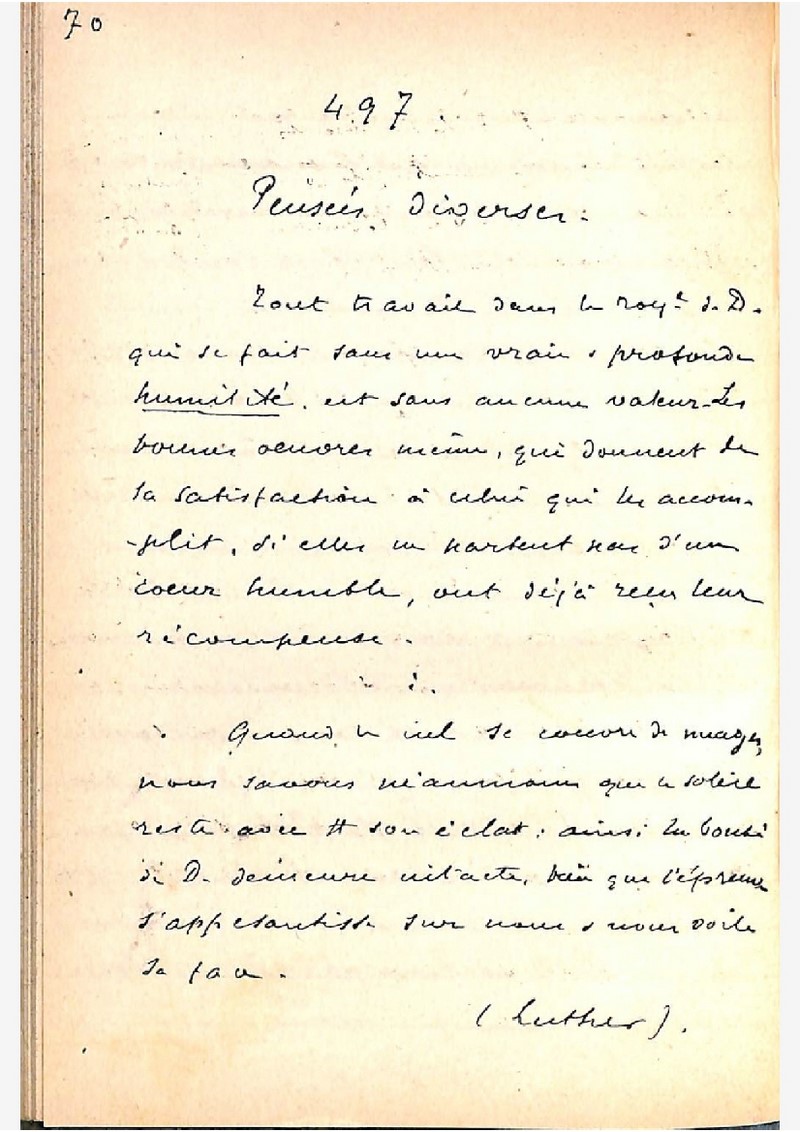 70
497.
Pensées diverses.
Tout travail dans le roy.e de D.
qui se fait sans une vraie & profonde
humilité, est sans aucune valeur. Les
bonnes oeuvres même, qui donnent de
la satisfaction à celui qui les accom-
-plit, si elles ne partent pas d'un
coeur humble, ont déjà reçu leur
récompense.
Quand le ciel se couvre de nuages,
nous savons néanmoins que le soleil
reste avec tt son éclat; ainsi la bonté
de D. demeure intacte, bien que l'épreuve
s'appesantisse sur nous & nous voile
sa face.
(Luther).